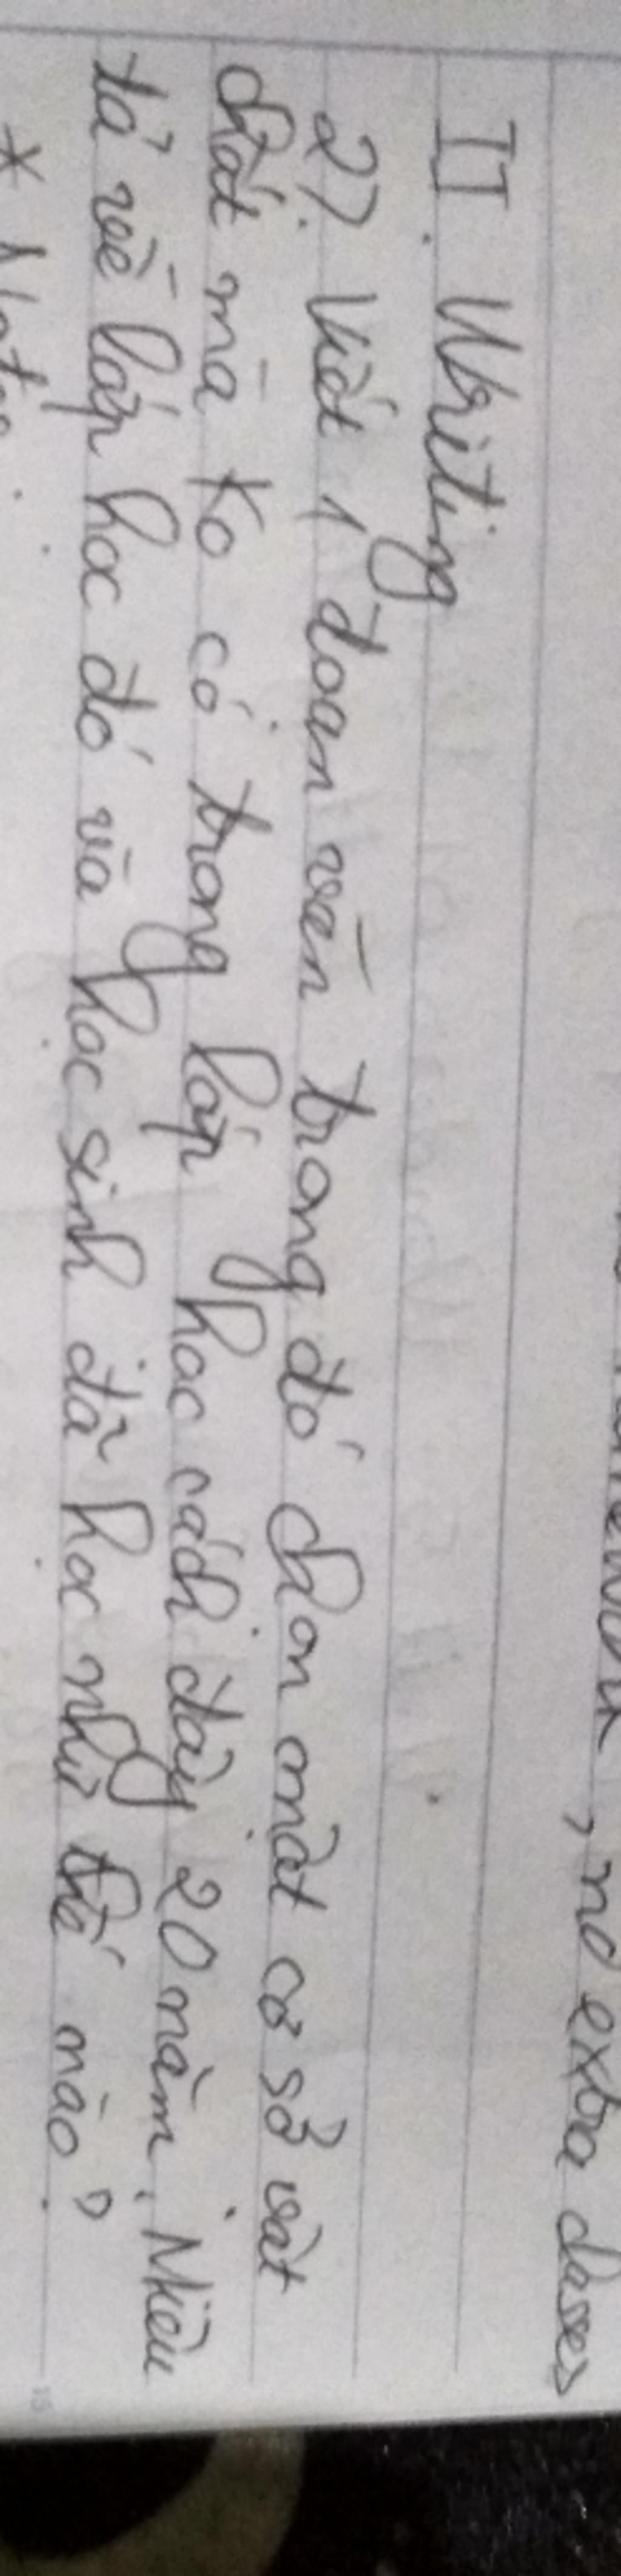 , no extra classes
II. Writing
2). Viết 1 đoạn văn trong đó chọn một cơ sở vật
chất mà ko có trong lớp học cách đây 20 năm. Miêu
tả về lớp học đó và học sinh đã học như thế nào?